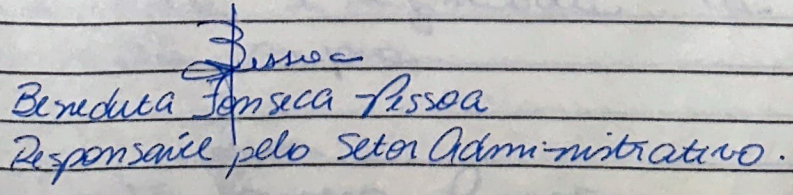 Pessoa
Benedita Fonseca Pessoa
Responsável pelo Setor Administrativo.